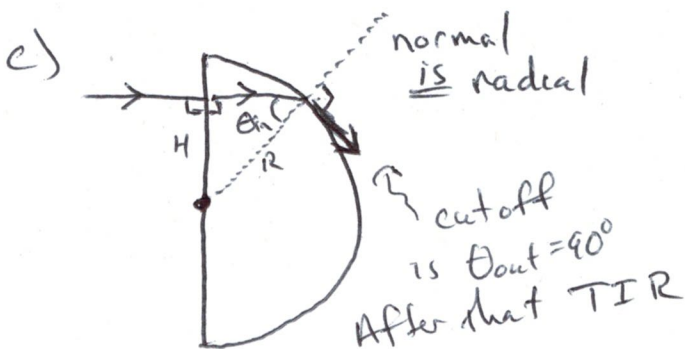 c)
normal
is radial
H
θin
R
cutoff
is θout=90°
After that TIR